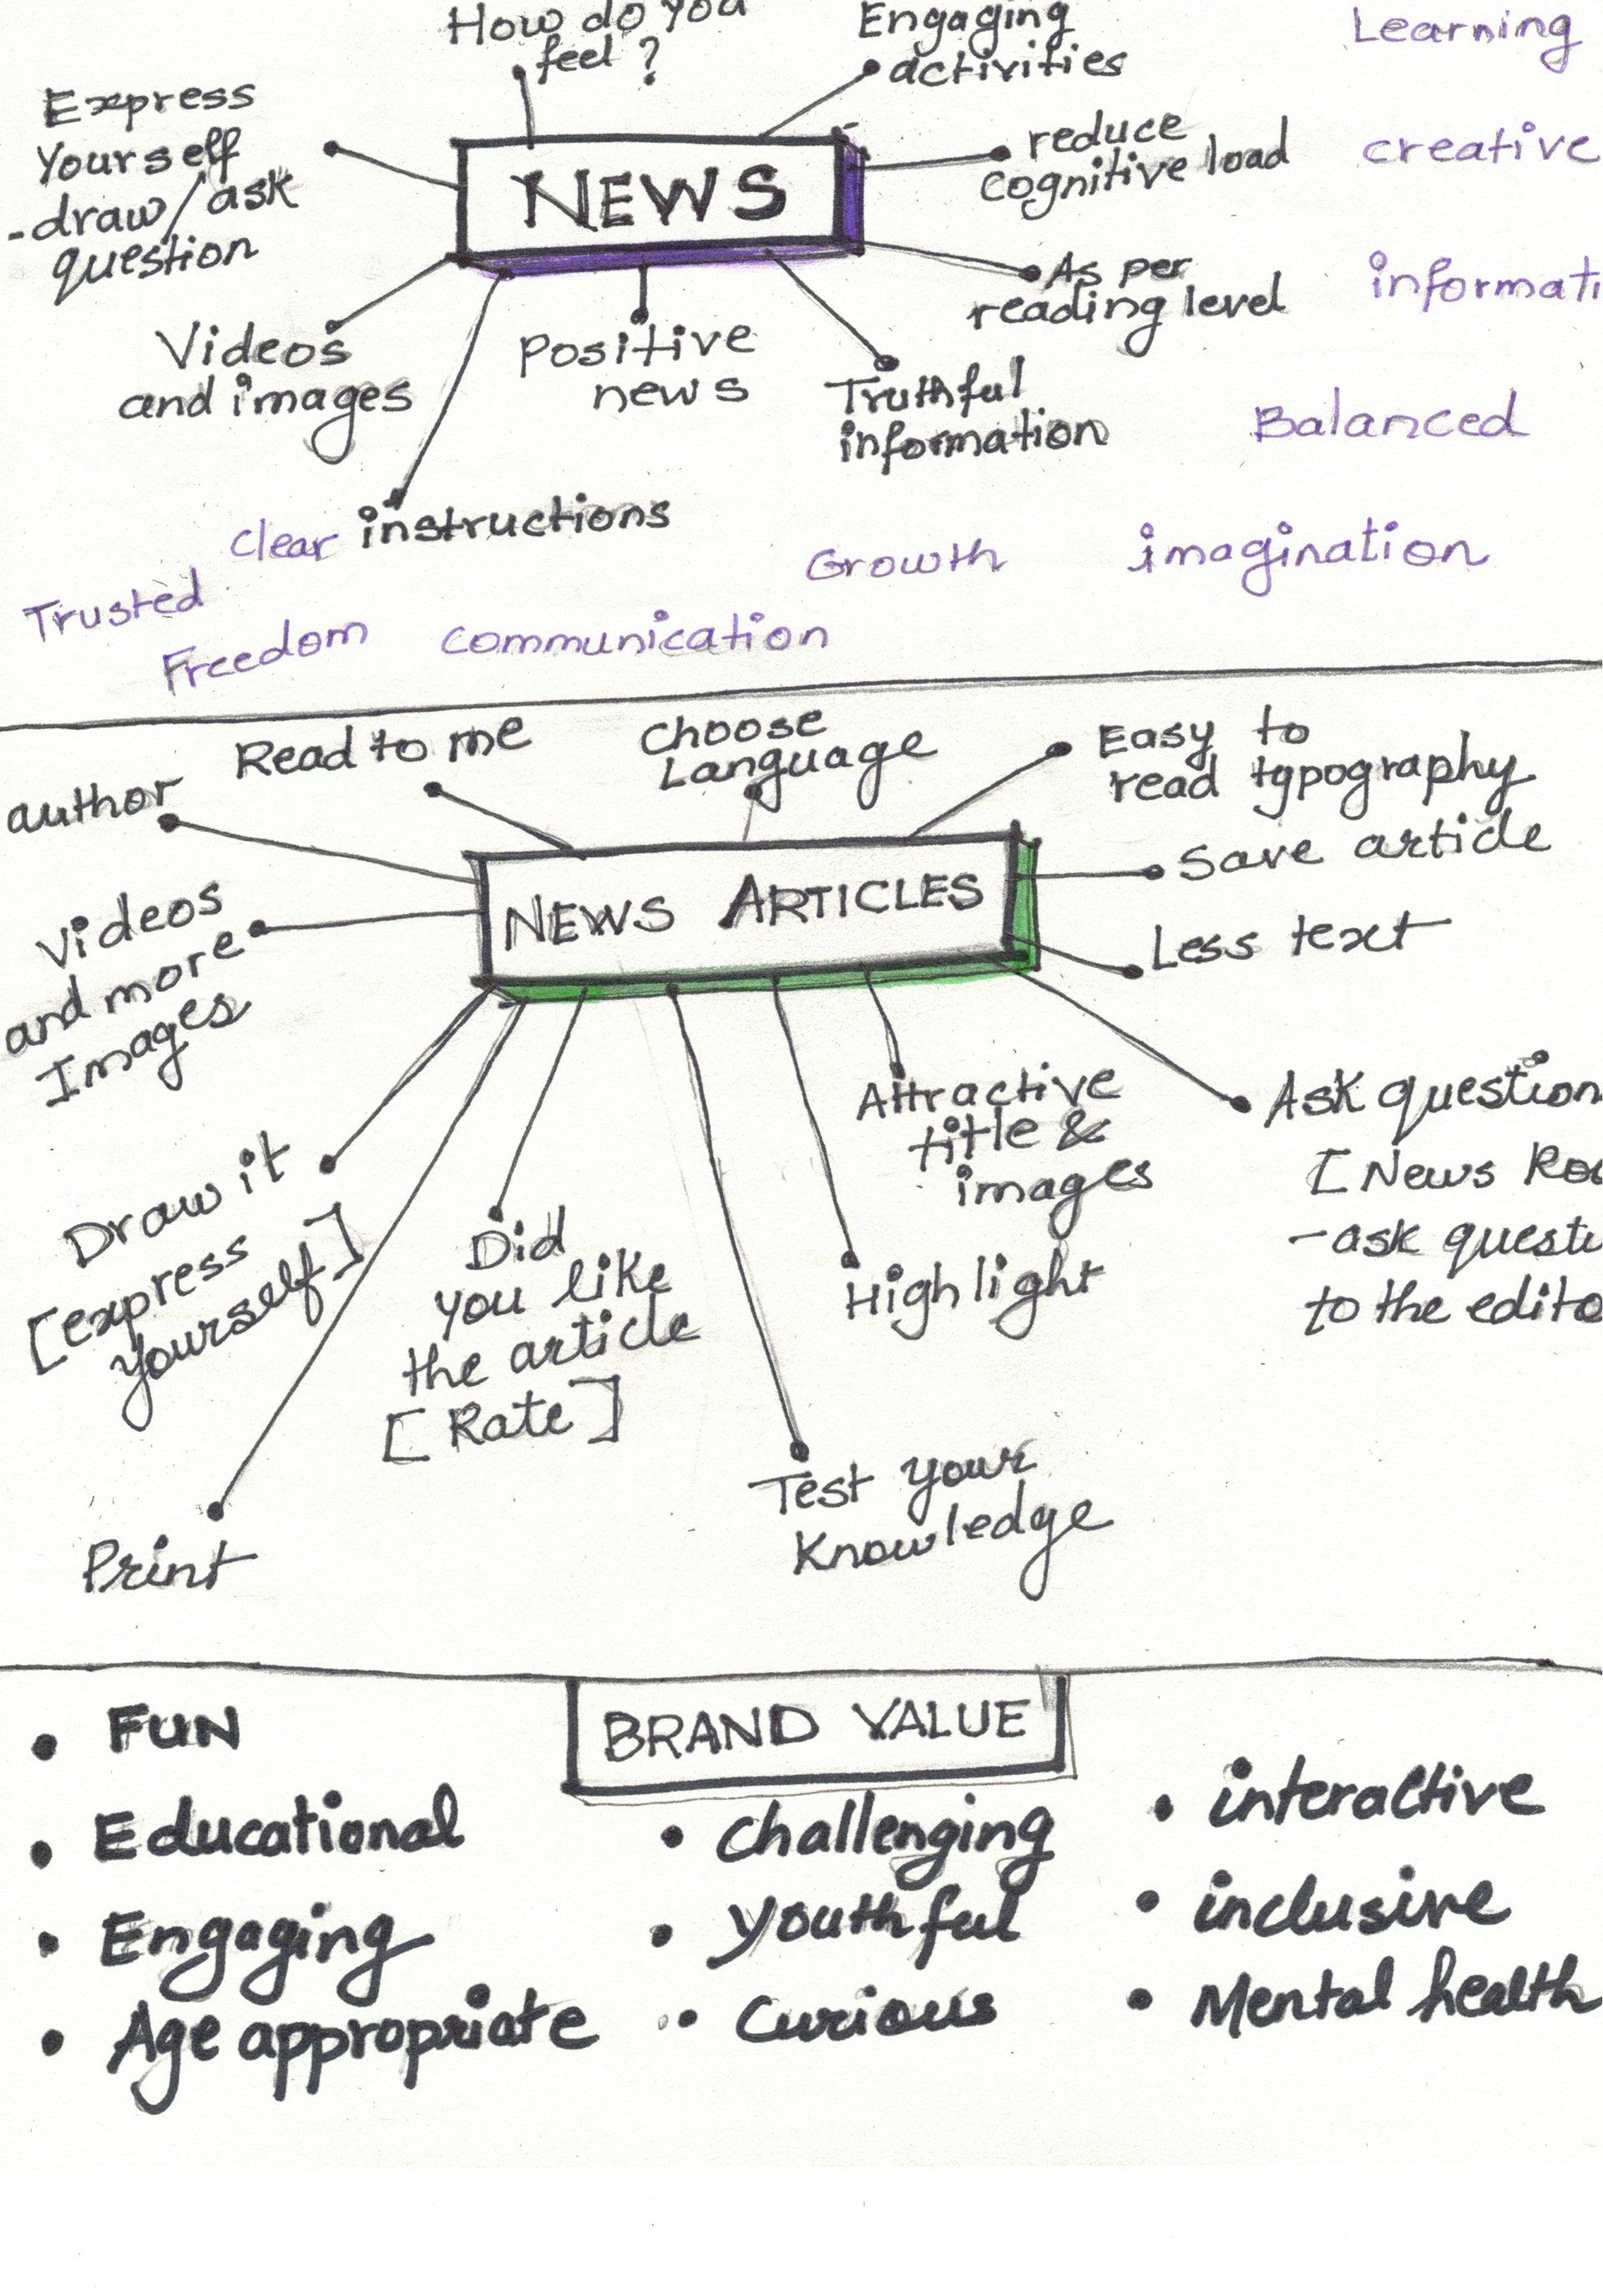 How do you
feel ?
Engaging
activities
Learning
Express
Yourself
-draw/ask
question
NEWS
reduce
cognitive load
creative
As per
reading level
informati
Videos
and images
Positive
news
Truthful
information
Balanced
clear instructions
Growth
imagination
Trusted
Freedom
communication
author
Read to me
Choose
Language
Easy to
read typography
Save article
NEWS ARTICLES
Less text
Videos
and more
Images
Ask question
[News Roo
-ask questi
to the edito
Attractive
title &
images
Draw it
[express
yourself]
Did
you like
the article
[Rate]
Highlight
Test your
Knowledge
Print
BRAND VALUE
• FUN
• Educational
• Engaging
• Age appropriate
• Challenging
• Youthful
• Curious
• interactive
• inclusive
• Mental health